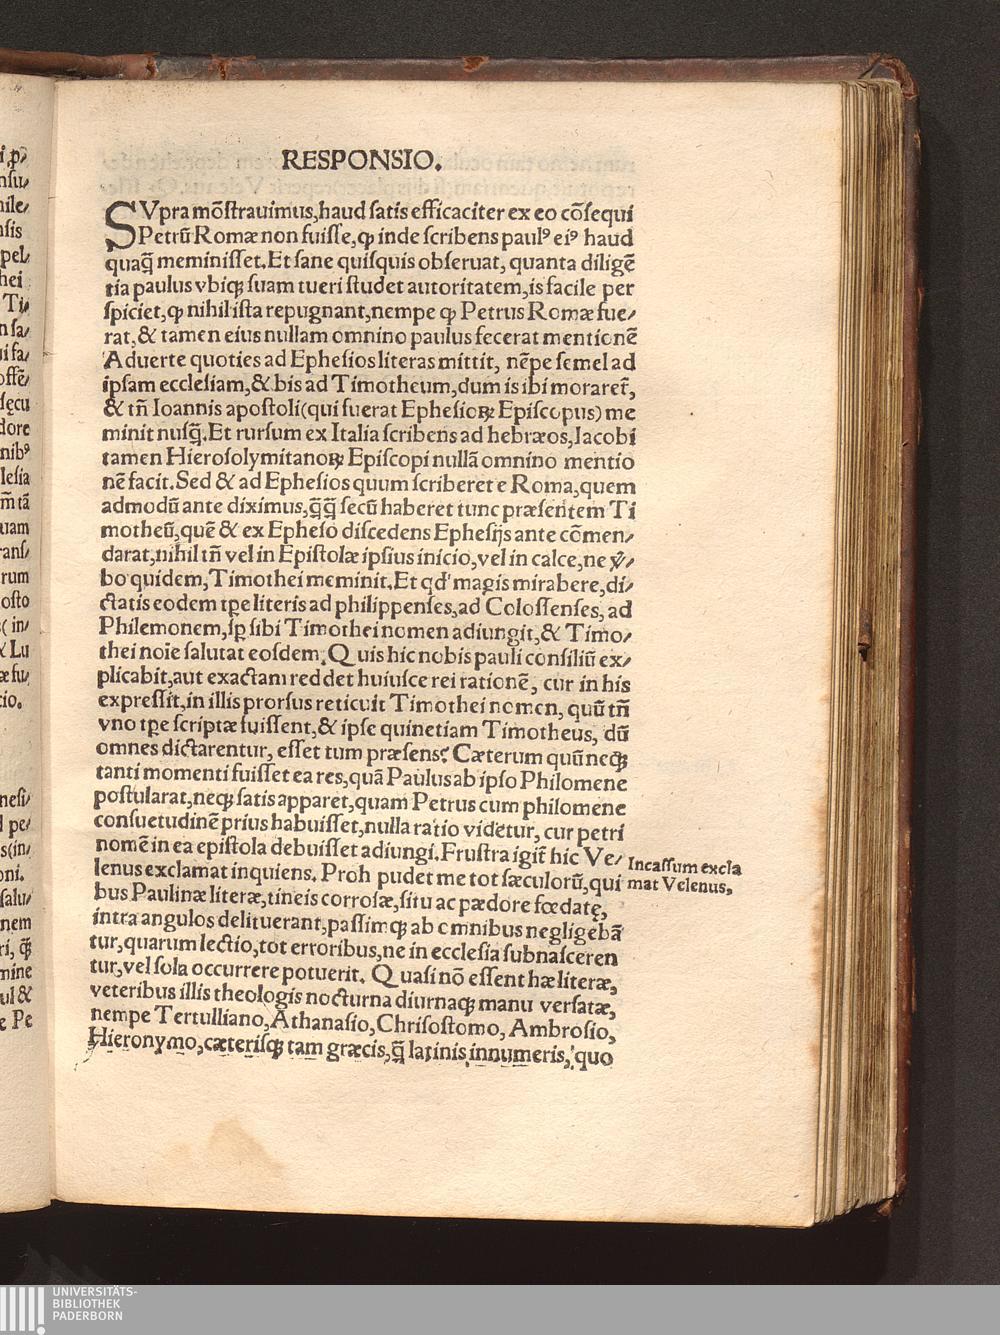 RESPONSIO.
SVpra mōstrauimus,haud satis efficaciter ex eo cōsequi
Petrū Romæ non fuisse,ꝙ inde scribens paulꝰ eiꝰ haud
quaq̃ meminisset.Et sane quisquis obseruat, quanta diligē
tia paulus vbiqꝫ suam tueri studet autoritatem,is facile per
spiciet,ꝙ nihil ista repugnant,nempe ꝙ Petrus Romæ fue/
rat,& tamen eius nullam omnino paulus fecerat mentionē
Aduerte quoties ad Ephesios literas mittit, nēpe semel ad
ipsam ecclesiam,& bis ad Timotheum,dum is ibi moraret̃,
& tñ Ioannis apostoli(qui fuerat Ephesioꝝ Episcopus) me
minit nusq̃.Et rursum ex Italia scribens ad hebræos,Iacobi
tamen Hierosolymitanoꝝ Episcopi nullā omnino mentio
nē facit.Sed & ad Ephesios quum scriberet e Roma,quem
admodū ante diximus,q̃q̃ secū haberet tunc præsentem Ti
motheū,quē & ex Epheso discedens Ephesijs ante cōmen/
darat,nihil tñ vel in Epistolæ ipsius inicio,vel in calce,ne v̾/
bo quidem,Timothei meminit.Et qd' magis mirabere,di/
ctatis eodem tꝑe literis ad philippenses,ad Colossenses,ad
Philemonem,sꝑ sibi Timothei nomen adiungit,& Timo/
thei noie salutat eosdem.Quis hic nobis pauli consiliū ex/
plicabit,aut exactam reddet huiusce rei rationē, cur in his
expressit,in illis prorsus reticuit Timothei nomen, quū tñ
vno tꝑe scriptæ fuissent,& ipse quinetiam Timotheus, dū
omnes dictarentur, esset tum præsens? Cæterum quū neqꝫ
tanti momenti fuisset ea res,quā Paulus ab ipso Philomene
postularat,neqꝫ satis apparet,quam Petrus cum philomene
consuetudinē prius habuisset,nulla ratio videtur, cur petri
nomē in ea epistola debuisset adiungi.Frustra igit̃ hic Ve/
lenus exclamat inquiens. Proh pudet me tot sæculorū,qui
bus Paulinæ literæ,tineis corrosæ,situ ac pædore fœdatę,
intra angulos delituerant,passimqꝫ ab omnibus negligebā
tur,quarum lectio,tot erroribus,ne in ecclesia subnasceren
tur,vel sola occurrere potuerit. Quasi nō essent hæ literæ,
veteribus illis theologis nocturna diurnaqꝫ manu versatæ,
nempe Tertulliano,Athanasio,Chrisostomo,Ambrosio,
Hieronymo,cæterisqꝫ tam græcis,q̃ latinis innumeris, quo
Incassum excla
mat Velenus,
UNIVERSITÄTS-
BIBLIOTHEK
PADERBORN